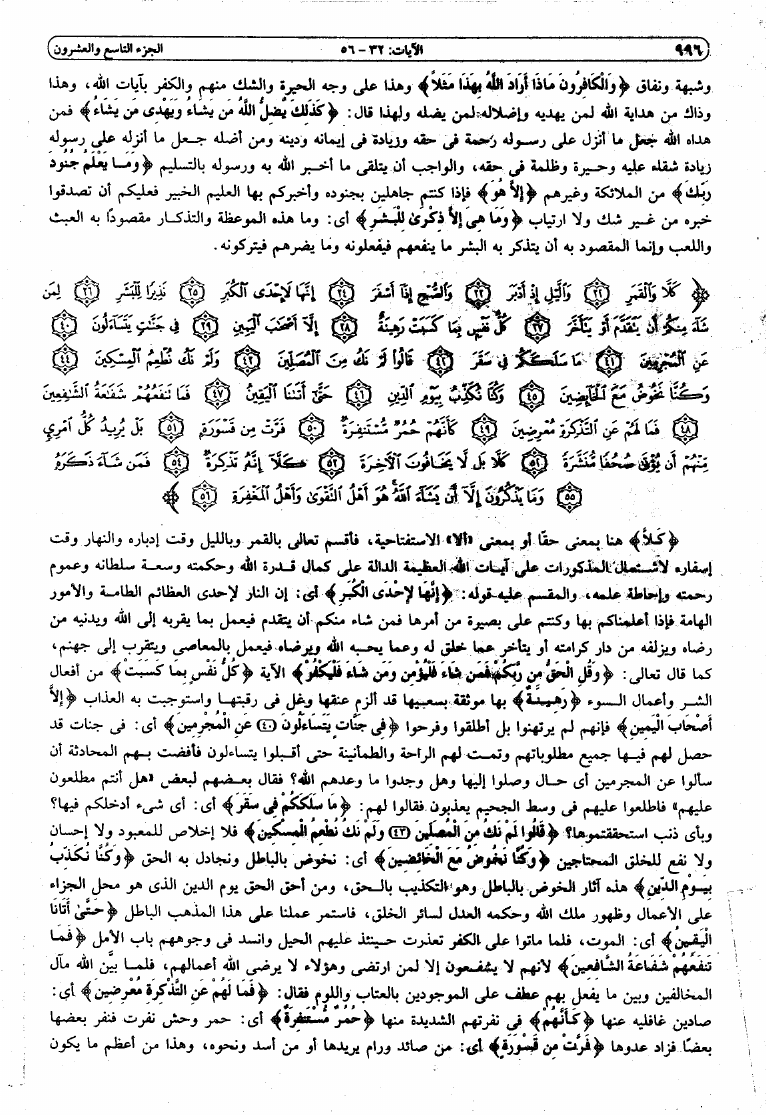 ٩٩٦ الآيات: ٣٢ - ٥٦ الجزء التاسع والعشرون
وشبهة ونفاق ﴿وَالْكَافِرُونَ مَاذَا أَرَادَ اللَّهُ بِهَذَا مَثَلاً﴾ وهذا على وجه الحيرة والشك منهم والكفر بآيات الله، وهذا
وذاك من هداية الله لمن يهديه وإضلاله لمن يضله ولهذا قال: ﴿كَذَلِكَ يُضِلُّ اللَّهُ مَن يَشَاءُ وَيَهْدِي مَن يَشَاءُ﴾ فمن
هداه الله جعل ما أنزل على رسوله رحمة في حقه وزيادة في إيمانه ودينه ومن أضله جعل ما أنزله على رسوله
زيادة شقاء عليه وحيرة وظلمة في حقه، والواجب أن يتلقى ما أخبر الله به ورسوله بالتسليم ﴿وَمَا يَعْلَمُ جُنُودَ
رَبِّكَ﴾ من الملائكة وغيرهم ﴿إِلاَّ هُوَ﴾ فإذا كنتم جاهلين بجنوده وأخبركم بها العليم الخبير فعليكم أن تصدقوا
خبره من غير شك ولا ارتياب ﴿وَمَا هِيَ إِلاَّ ذِكْرَى لِلْبَشَرِ﴾ أى: وما هذه الموعظة والتذكار مقصودًا به العبث
واللعب وإنما المقصود به أن يتذكر به البشر ما ينفعهم فيفعلونه وما يضرهم فيتركونه.
﴿كَلَّا وَالْقَمَرِ ٣٢ وَاللَّيْلِ إِذْ أَدْبَرَ ٣٣ وَالصُّبْحِ إِذَا أَسْفَرَ ٣٤ إِنَّهَا لَإِحْدَى الْكُبَرِ ٣٥ نَذِيرًا لِلْبَشَرِ ٣٦ لِمَن
شَاءَ مِنكُمْ أَن يَتَقَدَّمَ أَوْ يَتَأَخَّرَ ٣٧ كُلُّ نَفْسٍ بِمَا كَسَبَتْ رَهِينَةٌ ٣٨ إِلَّا أَصْحَابَ الْيَمِينِ ٣٩ فِي جَنَّاتٍ يَتَسَاءَلُونَ ٤٠
عَنِ الْمُجْرِمِينَ ٤١ مَا سَلَكَكُمْ فِي سَقَرَ ٤٢ قَالُوا لَمْ نَكُ مِنَ الْمُصَلِّينَ ٤٣ وَلَمْ نَكُ نُطْعِمُ الْمِسْكِينَ ٤٤
وَكُنَّا نَخُوضُ مَعَ الْخَائِضِينَ ٤٥ وَكُنَّا نُكَذِّبُ بِيَوْمِ الدِّينِ ٤٦ حَتَّى أَتَانَا الْيَقِينُ ٤٧ فَمَا تَنفَعُهُمْ شَفَاعَةُ الشَّافِعِينَ
٤٨ فَمَا لَهُمْ عَنِ التَّذْكِرَةِ مُعْرِضِينَ ٤٩ كَأَنَّهُمْ حُمُرٌ مُّسْتَنفِرَةٌ ٥٠ فَرَّتْ مِن قَسْوَرَةٍ ٥١ بَلْ يُرِيدُ كُلُّ امْرِئٍ
مِّنْهُمْ أَن يُؤْتَى صُحُفًا مُّنَشَّرَةً ٥٢ كَلَّا بَل لَّا يَخَافُونَ الْآخِرَةَ ٥٣ كَلَّا إِنَّهُ تَذْكِرَةٌ ٥٤ فَمَن شَاءَ ذَكَرَهُ
٥٥ وَمَا يَذْكُرُونَ إِلَّا أَن يَشَاءَ اللَّهُ هُوَ أَهْلُ التَّقْوَى وَأَهْلُ الْمَغْفِرَةِ ٥٦﴾
﴿كَلاَّ﴾ هنا بمعنى حقًا أو بمعنى «ألا» الاستفتاحية، فأقسم تعالى بالقمر وبالليل وقت إدباره والنهار وقت
إسفاره لاشتمال المذكورات على آيات الله العظيمة الدالة على كمال قدرة الله وحكمته وسعة سلطانه وعموم
رحمته وإحاطة علمه، والمقسم عليه قوله: ﴿إِنَّهَا لإِحْدَى الْكُبَرِ﴾ أى: إن النار لإحدى العظائم الطامة والأمور
الهامة فإذا أعلمناكم بها وكنتم على بصيرة من أمرها فمن شاء منكم أن يتقدم فيعمل بما يقربه إلى الله ويدنيه من
رضاه ويزلفه من دار كرامته أو يتأخر عما خلق له وعما يحبه الله ويرضاه فيعمل بالمعاصى ويتقرب إلى جهنم،
كما قال تعالى: ﴿وَقُلِ الْحَقُّ مِن رَّبِّكُمْ فَمَن شَاءَ فَلْيُؤْمِن وَمَن شَاءَ فَلْيَكْفُرْ﴾ الآية ﴿كُلُّ نَفْسٍ بِمَا كَسَبَتْ﴾ من أفعال
الشر وأعمال السوء ﴿رَهِينَةٌ﴾ بها موثقة بسعيها قد ألزم عنقها وغل فى رقبتها واستوجبت به العذاب ﴿إِلاَّ
أَصْحَابَ الْيَمِينِ﴾ فإنهم لم يرتهنوا بل أطلقوا وفرحوا ﴿فِي جَنَّاتٍ يَتَسَاءَلُونَ (٤٠) عَنِ الْمُجْرِمِينَ﴾ أى: فى جنات قد
حصل لهم فيها جميع مطلوباتهم وتمت لهم الراحة والطمأنينة حتى أقبلوا يتساءلون فأفضت بهم المحادثة أن
سألوا عن المجرمين أى حال وصلوا إليها وهل وجدوا ما وعدهم الله؟ فقال بعضهم لبعض «هل أنتم مطلعون
عليهم» فاطلعوا عليهم فى وسط الجحيم يعذبون فقالوا لهم: ﴿مَا سَلَكَكُمْ فِي سَقَرَ﴾ أى: أى شىء أدخلكم فيها؟
وبأى ذنب استحققتموها؟ ﴿قَالُوا لَمْ نَكُ مِنَ الْمُصَلِّينَ (٤٣) وَلَمْ نَكُ نُطْعِمُ الْمِسْكِينَ﴾ فلا إخلاص للمعبود ولا إحسان
ولا نفع للخلق المحتاجين ﴿وَكُنَّا نَخُوضُ مَعَ الْخَائِضِينَ﴾ أى: نخوض بالباطل ونجادل به الحق ﴿وَكُنَّا نُكَذِّبُ
بِيَوْمِ الدِّينِ﴾ هذه آثار الخوض بالباطل وهو التكذيب بالحق، ومن أحق الحق يوم الدين الذى هو محل الجزاء
على الأعمال وظهور ملك الله وحكمه العدل لسائر الخلق، فاستمر عملنا على هذا المذهب الباطل ﴿حَتَّى أَتَانَا
الْيَقِينُ﴾ أى: الموت، فلما ماتوا على الكفر تعذرت حينئذ عليهم الحيل وانسد فى وجوههم باب الأمل ﴿فَمَا
تَنفَعُهُمْ شَفَاعَةُ الشَّافِعِينَ﴾ لأنهم لا يشفعون إلا لمن ارتضى وهؤلاء لا يرضى الله أعمالهم، فلما بيَّن الله مآل
المخالفين وبين ما يفعل بهم عطف على الموجودين بالعتاب واللوم فقال: ﴿فَمَا لَهُمْ عَنِ التَّذْكِرَةِ مُعْرِضِينَ﴾ أى:
صادين غافليه عنها ﴿كَأَنَّهُمْ﴾ فى نفرتهم الشديدة منها ﴿حُمُرٌ مُّسْتَنفِرَةٌ﴾ أى: حمر وحش نفرت فنفر بعضها
بعضًا فزاد عدوها ﴿فَرَّتْ مِن قَسْوَرَةٍ﴾ أى: من صائد ورام يريدها أو من أسد ونحوه، وهذا من أعظم ما يكون